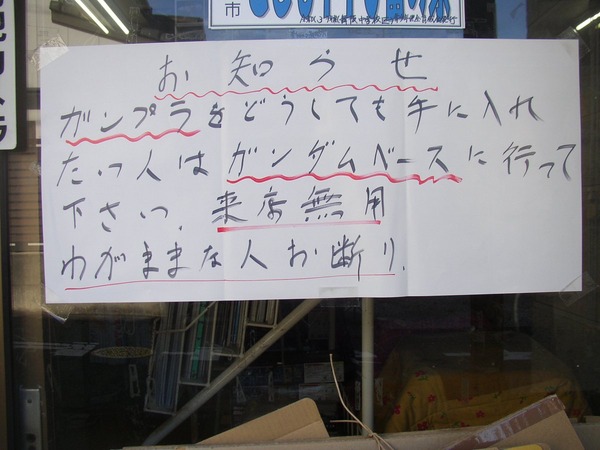 市
お知らせ
ガンプラをどうしても手に入れ
たい人はガンダムベースに行って
下さい、来店無用
わがままな人お断り.